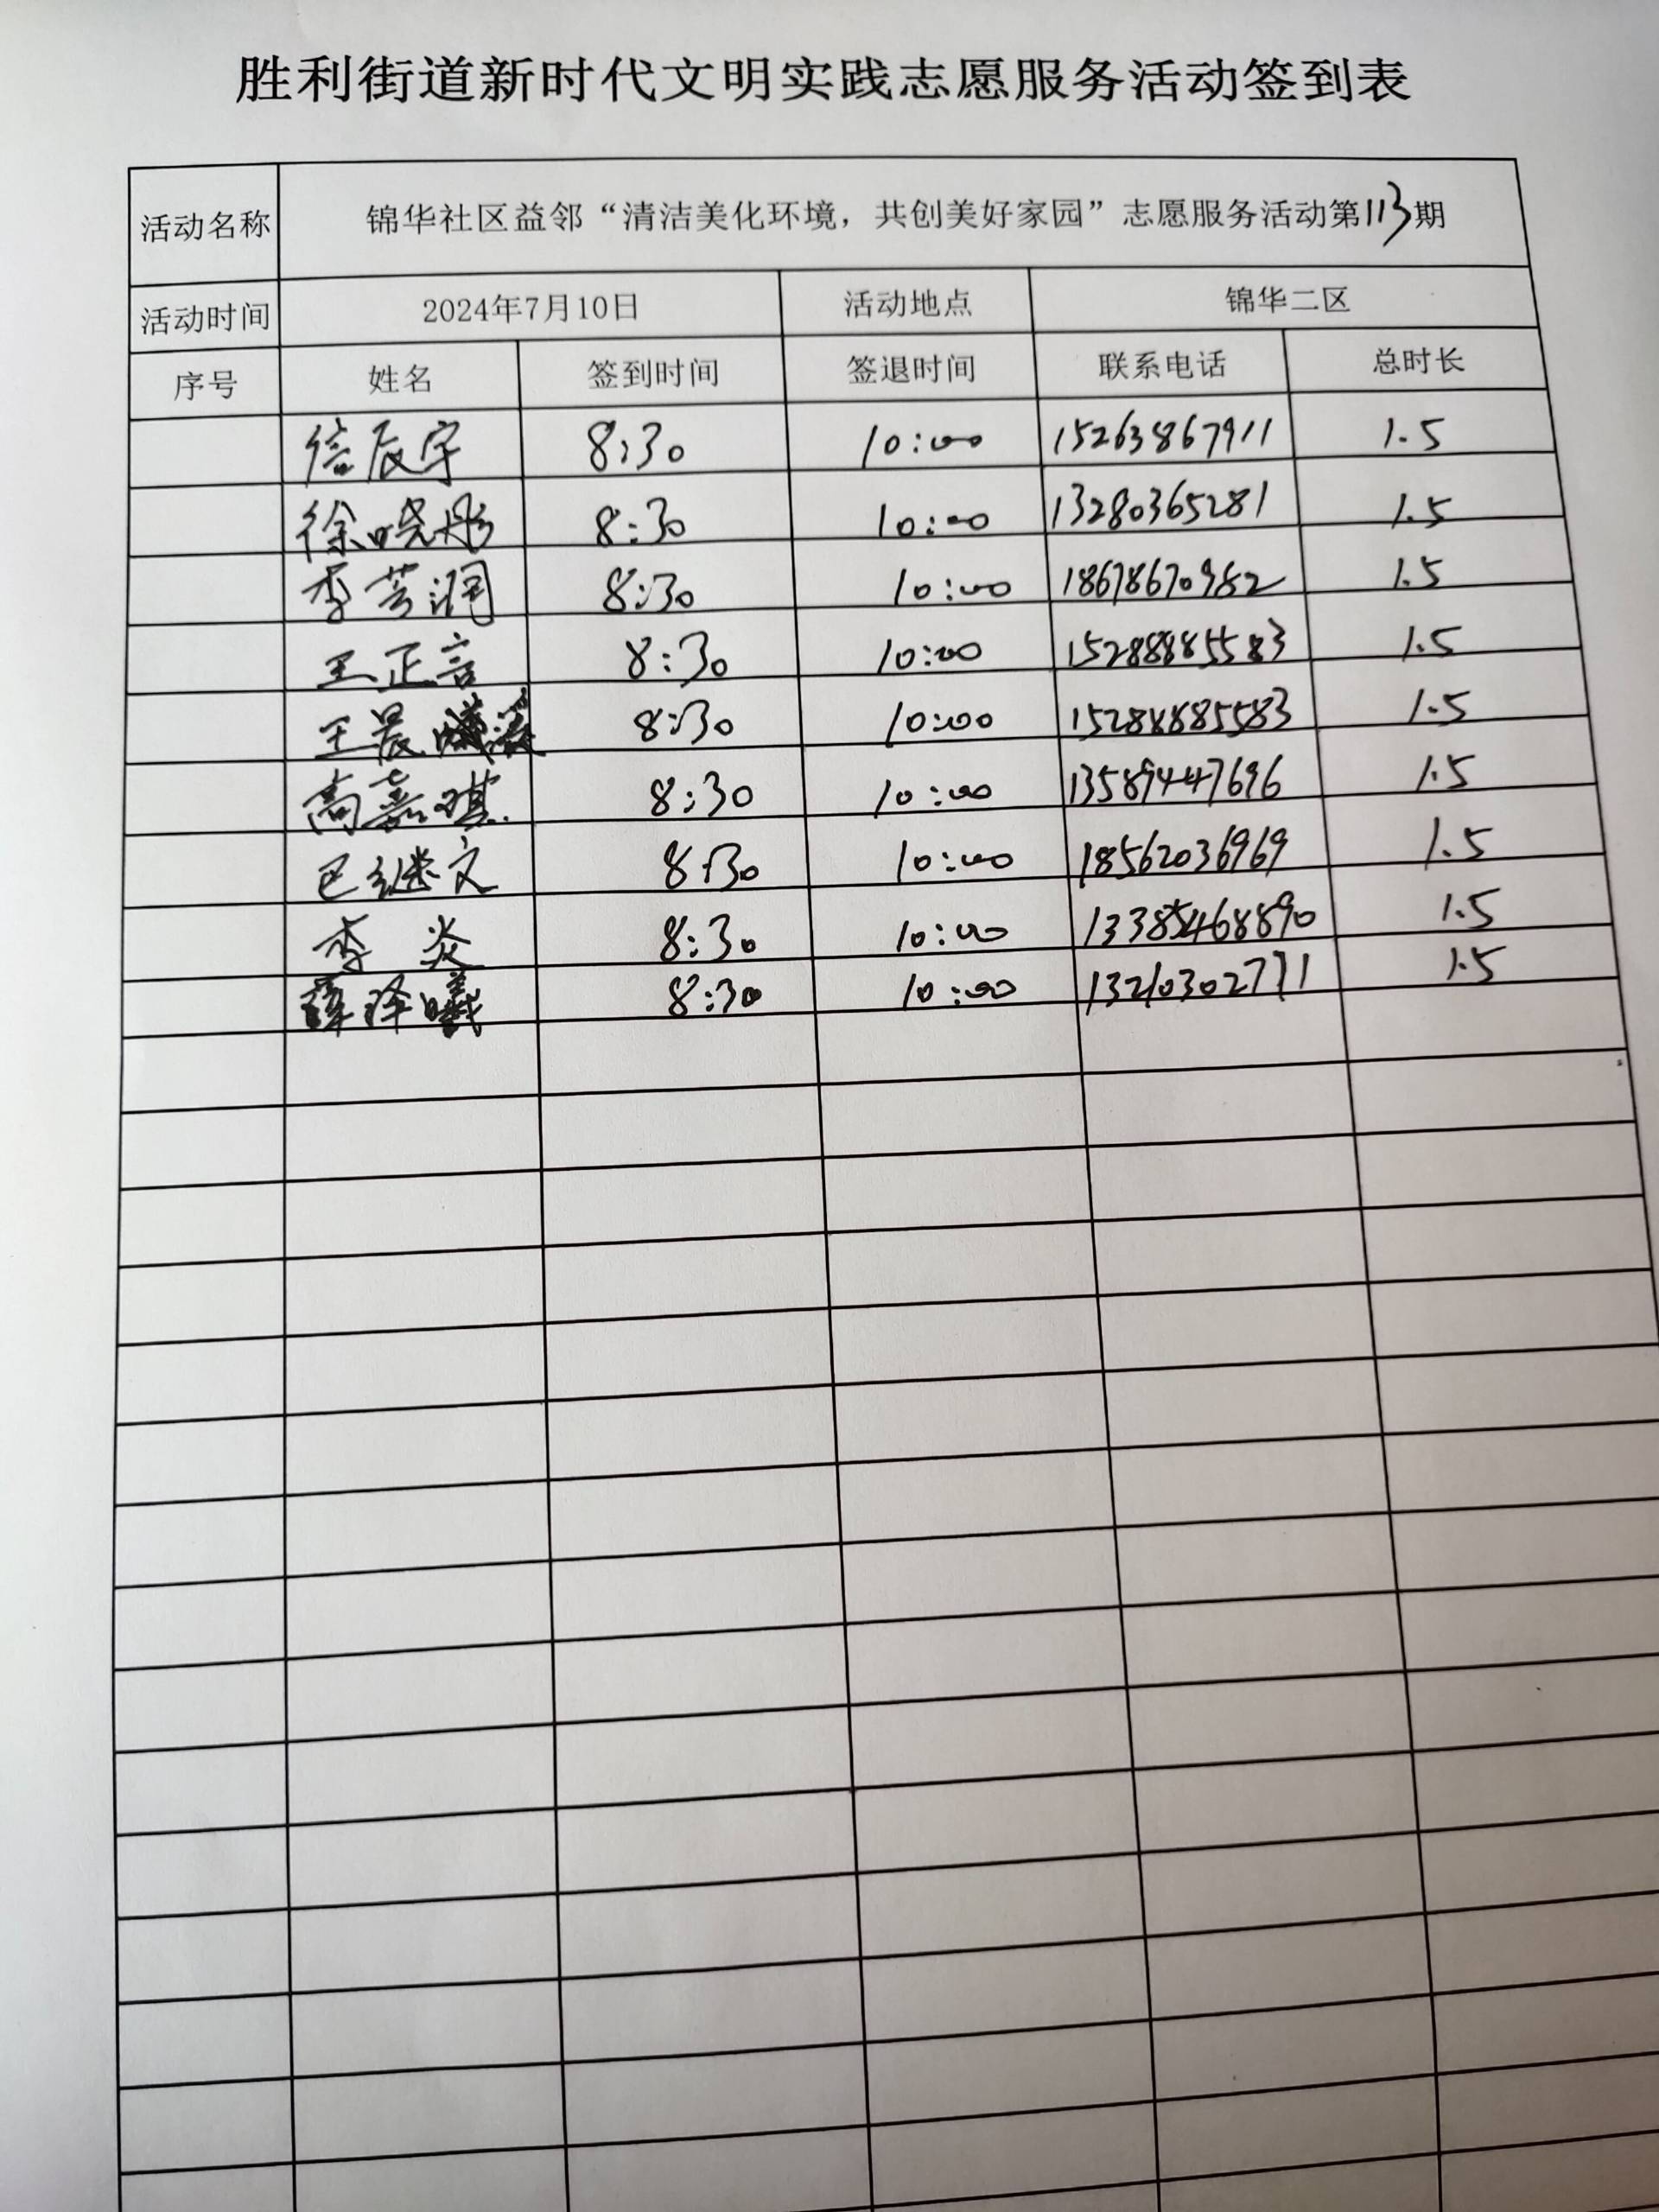 胜利街道新时代文明实践志愿服务活动签到表
活动名称 锦华社区益邻“清洁美化环境，共创美好家园”志愿服务活动第113期
活动时间 2024年7月10日 活动地点 锦华二区
序号 姓名 签到时间 签退时间 联系电话 总时长
辰宇 8:30 10:00 15263867911 1.5
徐晓彤 8:30 10:00 13280365281 1.5
李芳润 8:30 10:00 18678670982 1.5
王正言 8:30 10:00 15288885583 1.5
王晨 8:30 10:00 15288885583 1.5
高嘉琪 8:30 10:00 13589447696 1.5
巴继文 8:30 10:00 18562036969 1.5
李炎 8:30 10:00 13385468890 1.5
薛泽曦 8:30 10:00 13210302771 1.5